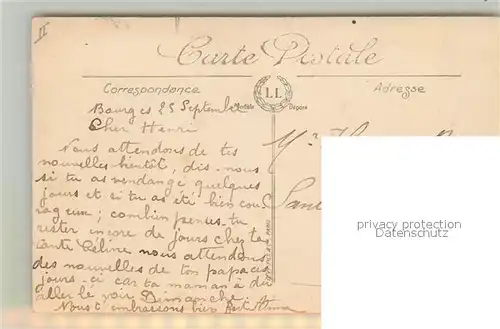 II
Carte Postale
Correspondance
Adresse
LL
Modèle Déposé
Bourges 25 Septembre
Cher Henri
Nous attendons de tes
nouvelles bientôt, dis-nous
si tu as vendangé quelques
jours et si tu as été bien cou-
rageux; combien penses-tu
rester encore de jours chez ta
tante Céline nous attendons
des nouvelles de ton papa ces
jours-ci car ta maman a dû
aller le voir Dimanche
Nous t'embrassons bien
Mr
privacy protection
Datenschutz